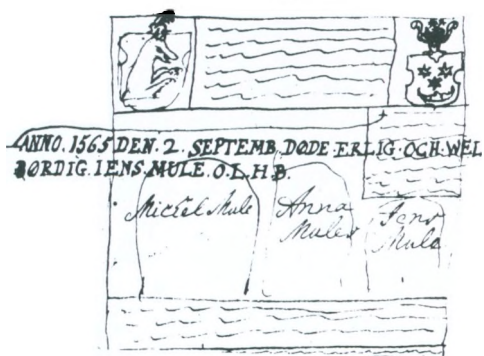 ANNO. 1565 DEN. 2. SEPTEMB. DØDE ERLIG OCH WEL
BØRDIG. IENS. MULE. O. L. H. B.
Mickel Mule
Anna
Mules
Jens
Mule